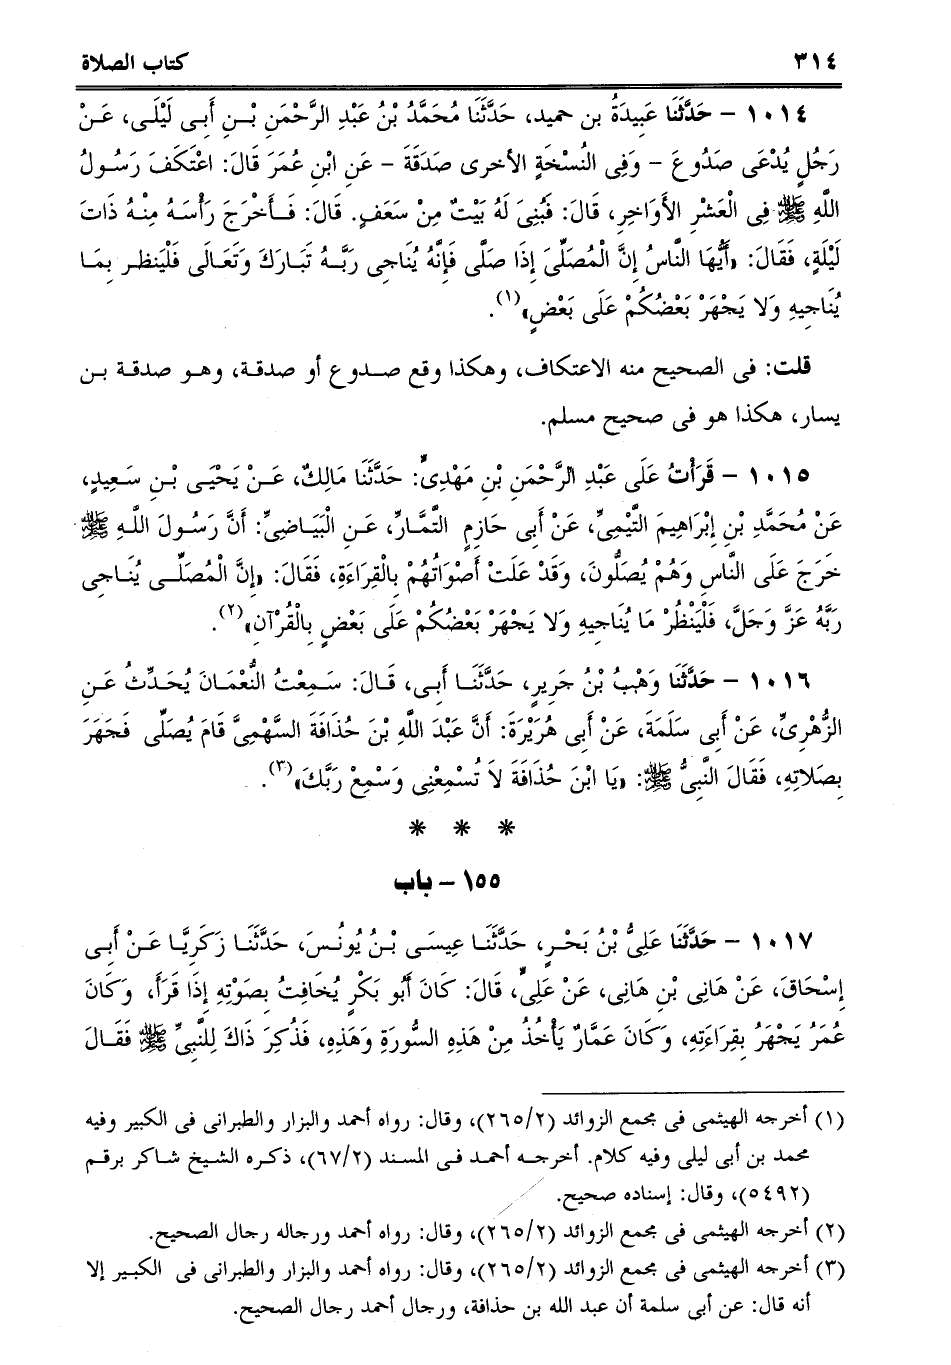 ٣١٤ كتاب الصلاة
١٠١٤ – حَدَّثَنَا عَبِيدَةُ بن حميد، حَدَّثَنَا مُحَمَّدُ بْنُ عَبْدِ الرَّحْمَنِ بْنِ أَبِى لَيْلَى، عَنْ
رَجُلٍ يُدْعَى صَدُوعَ – وَفِى النُّسْخَةِ الأخرى صَدَقَةَ – عَنِ ابْنِ عُمَرَ قَالَ: اعْتَكَفَ رَسُولُ
اللَّهِ ﷺ فِى الْعَشْرِ الأَوَاخِرِ، قَالَ: فَبُنِىَ لَهُ بَيْتٌ مِنْ سَعَفٍ. قَالَ: فَأَخْرَجَ رَأْسَهُ مِنْهُ ذَاتَ
لَيْلَةٍ، فَقَالَ: «أَيُّهَا النَّاسُ إِنَّ الْمُصَلِّىَ إِذَا صَلَّى فَإِنَّهُ يُنَاجِى رَبَّهُ تَبَارَكَ وَتَعَالَى فَلْيَنظر بِمَا
يُنَاجِيهِ وَلا يَجْهَرْ بَعْضُكُمْ عَلَى بَعْضٍ»(١).
قلت: فى الصحيح منه الاعتكاف، وهكذا وقع صدوع أو صدقة، وهو صدقة بن
يسار، هكذا هو فى صحيح مسلم.
١٠١٥ – قَرَأْتُ عَلَى عَبْدِ الرَّحْمَنِ بْنِ مَهْدِىٍّ: حَدَّثَنَا مَالِكٌ، عَنْ يَحْيَى بْنِ سَعِيدٍ،
عَنْ مُحَمَّدِ بْنِ إِبْرَاهِيمَ التَّيْمِىِّ، عَنْ أَبِى حَازِمٍ التَّمَّارِ، عَنِ الْبَيَاضِىِّ: أَنَّ رَسُولَ اللَّهِ ﷺ
خَرَجَ عَلَى النَّاسِ وَهُمْ يُصَلُّونَ، وَقَدْ عَلَتْ أَصْوَاتُهُمْ بِالْقِرَاءَةِ، فَقَالَ: «إِنَّ الْمُصَلِّى يُنَاجِى
رَبَّهُ عَزَّ وَجَلَّ، فَلْيَنْظُرْ مَا يُنَاجِيهِ وَلا يَجْهَرْ بَعْضُكُمْ عَلَى بَعْضٍ بِالْقُرْآنِ»(٢).
١٠١٦ – حَدَّثَنَا وَهْبُ بْنُ جَرِيرٍ، حَدَّثَنَا أَبِى، قَالَ: سَمِعْتُ النُّعْمَانَ يُحَدِّثُ عَنِ
الزُّهْرِىِّ، عَنْ أَبِى سَلَمَةَ، عَنْ أَبِى هُرَيْرَةَ: أَنَّ عَبْدَ اللَّهِ بْنَ حُذَافَةَ السَّهْمِىَّ قَامَ يُصَلِّى فَجَهَرَ
بِصَلاتِهِ، فَقَالَ النَّبِىُّ ﷺ: «يَا ابْنَ حُذَافَةَ لاَ تُسْمِعْنِى وَسَمِعْ رَبَّكَ»(٣).
* * *
١٥٥ – باب
١٠١٧ – حَدَّثَنَا عَلِىُّ بْنُ بَحْرٍ، حَدَّثَنَا عِيسَى بْنُ يُونُسَ، حَدَّثَنَا زَكَرِيَّا عَنْ أَبِى
إِسْحَاقَ، عَنْ هَانِى بْنِ هَانِى، عَنْ عَلِىٍّ، قَالَ: كَانَ أَبُو بَكْرٍ يُخَافِتُ بِصَوْتِهِ إِذَا قَرَأَ، وَكَانَ
عُمَرُ يَجْهَرُ بِقِرَاءَتِهِ، وَكَانَ عَمَّارٌ يَأْخُذُ مِنْ هَذِهِ السُّورَةِ وَهَذِهِ، فَذُكِرَ ذَاكَ لِلنَّبِىِّ ﷺ فَقَالَ
(١) أخرجه الهيثمى فى مجمع الزوائد (٢٦٥/٢)، وقال: رواه أحمد والبزار والطبرانى فى الكبير وفيه
محمد بن أبى ليلى وفيه كلام. أخرجه أحمد فى المسند (٦٧/٢)، ذكره الشيخ شاكر برقم
(٥٤٩٢)، وقال: إسناده صحيح.
(٢) أخرجه الهيثمى فى مجمع الزوائد (٢٦٥/٢)، وقال: رواه أحمد ورجاله رجال الصحيح.
(٣) أخرجه الهيثمى فى مجمع الزوائد (٢٦٥/٢)، وقال: رواه أحمد والبزار والطبرانى فى الكبير إلا
أنه قال: عن أبى سلمة أن عبد الله بن حذافة، ورجال أحمد رجال الصحيح.